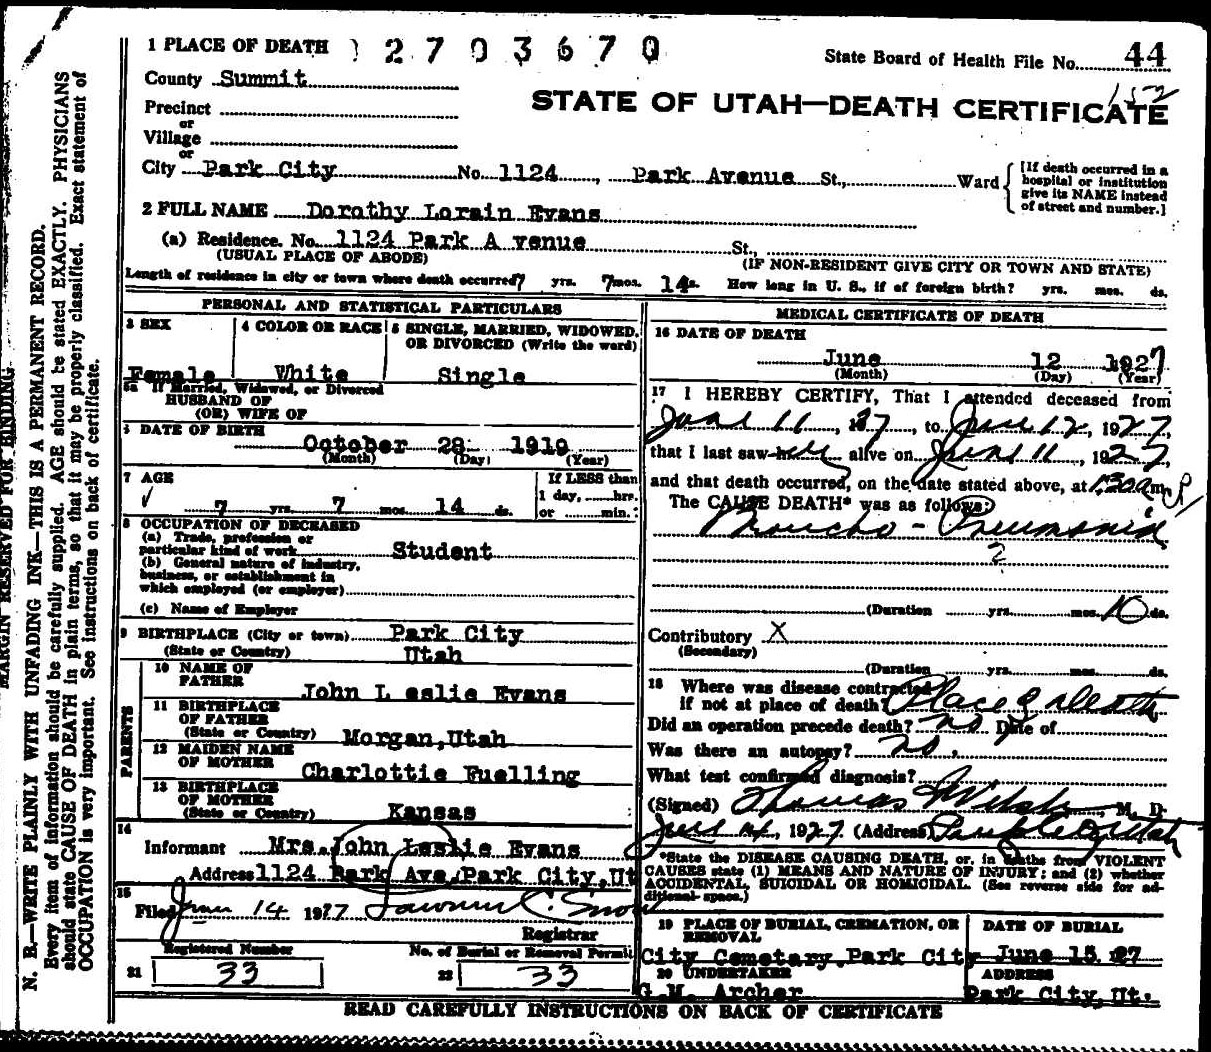 1 PLACE OF DEATH 2703670
State Board of Health File No. 44
County Summit
152
STATE OF UTAH—DEATH CERTIFICATE
Precinct
or
Village
or
City Park City No. 1124, Park Avenue St., Ward
[If death occurred in a hospital or institution give its NAME instead of street and number.]
2 FULL NAME Dorothy Lorain Evans
(a) Residence. No. 1124 Park A venue St.,
(USUAL PLACE OF ABODE) (IF NON-RESIDENT GIVE CITY OR TOWN AND STATE)
Length of residence in city or town where death occurred 7 yrs. 7 mos. 14 ds. How long in U. S., if of foreign birth? yrs. mos. ds.
PERSONAL AND STATISTICAL PARTICULARS
3 SEX
Female
4 COLOR OR RACE
White
5 SINGLE, MARRIED, WIDOWED, OR DIVORCED (Write the word)
Single
5a If Married, Widowed, or Divorced
HUSBAND OF
(OR) WIFE OF
6 DATE OF BIRTH
October 28 1919
(Month) (Day) (Year)
7 AGE
7 yrs. 7 mos. 14 ds.
If LESS than
1 day, hrs.
or min.
8 OCCUPATION OF DECEASED
(a) Trade, profession or
particular kind of work Student
(b) General nature of industry,
business, or establishment in
which employed (or employer)
(c) Name of Employer
9 BIRTHPLACE (City or town) Park City
(State or Country) Utah
PARENTS
10 NAME OF
FATHER John L eslie Evans
11 BIRTHPLACE
OF FATHER
(State or Country) Morgan,Utah
12 MAIDEN NAME
OF MOTHER Charlottie Fuelling
13 BIRTHPLACE
OF MOTHER
(State or Country) Kansas
14
Informant Mrs.John Leslie Evans
Address 1124 Park Ave.Park City,Ut
15
Filed June 14 1927 Lawrence C. Snow
Registrar
Registered Number No. of Burial or Removal Permit
21 33 22 33
MEDICAL CERTIFICATE OF DEATH
16 DATE OF DEATH
June 12 1927
(Month) (Day) (Year)
17 I HEREBY CERTIFY, That I attended deceased from
June 11, 27, to June 12, 1927,
that I last saw her alive on June 11, 1927,
and that death occurred, on the date stated above, at 1:30 a m.
The CAUSE DEATH* was as follows:
Broncho - Pneumonia
2
(Duration yrs. mos. 10 ds.
Contributory X
(Secondary)
(Duration yrs. mos. ds.
18 Where was disease contracted
if not at place of death? Place of death
Did an operation precede death? no Date of
Was there an autopsy? no.
What test confirmed diagnosis?
(Signed) Thomas, M. D.
June 14, 1927 (Address) Park City Utah
*State the DISEASE CAUSING DEATH, or, in deaths from VIOLENT
CAUSES state (1) MEANS AND NATURE OF INJURY; and (2) whether
ACCIDENTAL, SUICIDAL OR HOMICIDAL. (See reverse side for ad-
ditional space.)
19 PLACE OF BURIAL, CREMATION, OR REMOVAL
City Cemetary.Park City
DATE OF BURIAL
June 15. 27
20 UNDERTAKER
G.M. Archer
ADDRESS
Park City,Ut.
READ CAREFULLY INSTRUCTIONS ON BACK OF CERTIFICATE
MARGIN RESERVED FOR BINDING
N. B.—WRITE PLAINLY WITH UNFADING INK—THIS IS A PERMANENT RECORD.
Every item of information should be carefully supplied. AGE should be stated EXACTLY. PHYSICIANS
should state CAUSE OF DEATH in plain terms, so that it may be properly classified. Exact statement of
OCCUPATION is very important. See instructions on back of certificate.